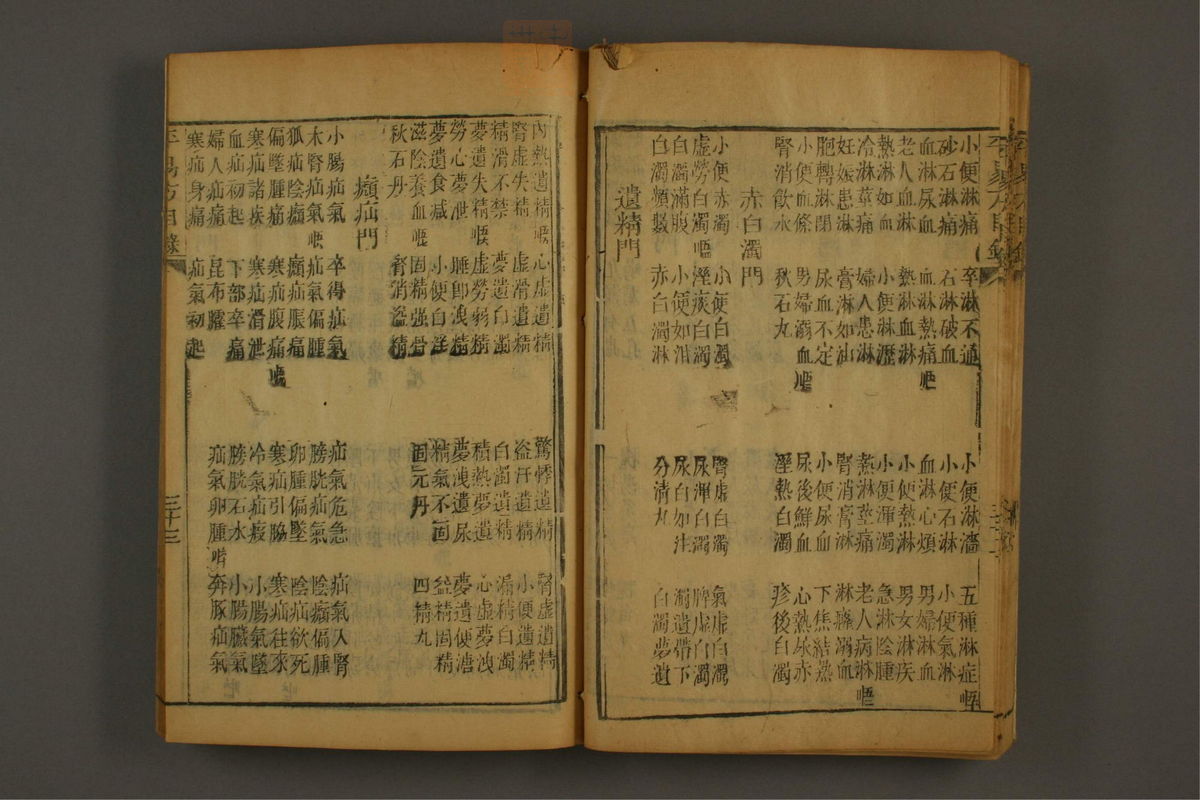 小便淋痛 卒淋不通 小便淋濇 五種淋症
砂石淋痛 石淋破血 小便石淋 小便氣淋
血淋尿血 血淋熱痛 血淋心煩 男婦淋血
老人血淋 熱淋血淋 小便熱淋 男女淋疾
熱淋如血 小便淋瀝 小便渾濁 急淋陰腫
冷淋莖痛 婦人患淋 熱淋莖痛 老人病淋
妊娠患淋 膏淋如油 腎消膏淋 淋痛溺血
胞轉淋閉 尿血不定 小便尿血 下焦結熱
小便血條 男婦溺血 尿後鮮血 心熱尿赤
腎消飲水 秋石丸 溼熱白濁 疹後白濁
赤白濁門
小便赤濁 小便白濁 腎虛白濁 氣虛白濁
虛勞白濁 溼痰白濁 尿渾白濁 脾虛白濁
白濁滿腹 小便如泔 尿白如注 濁遺帶下
白濁頻數 赤白濁淋 分清丸 白濁夢遺
遺精門
內熱遺精 心虛遺精 驚悸遺精 腎虛遺精
腎虛失精 虛滑遺精 盜汗遺精 小便遺精
精滑不禁 夢遺白濁 白濁遺精 漏精白濁
夢遺失精 虛勞弱精 積熱夢遺 心虛夢洩
勞心夢泄 睡卽洩精 夢洩遺尿 夢遺便溏
夢遺食減 小便白淫 精氣不固 益精固精
滋陰養血 固精强骨 固元丹 四精丸
秋石丹 腎消盜精
癩疝門
小腸疝氣 卒得疝氣 疝氣危急 疝氣入腎
木腎疝氣 疝氣偏腫 膀胱疝氣 陰癩偏腫
狐疝陰㿗 癩疝脹痛 卵腫偏墜 陰疝欲死
偏墜腫痛 寒疝腹痛 寒疝引脇 寒疝往來
寒疝諸疾 寒疝滑泄 冷氣疝瘕 小腸氣墜
血疝初起 下部卒痛 膀胱石水 小腸臟氣
婦人疝痛 昆布臛 疝氣卵腫 奔豚疝氣
寒疝身痛 疝氣初起
平易方目錄
三十三